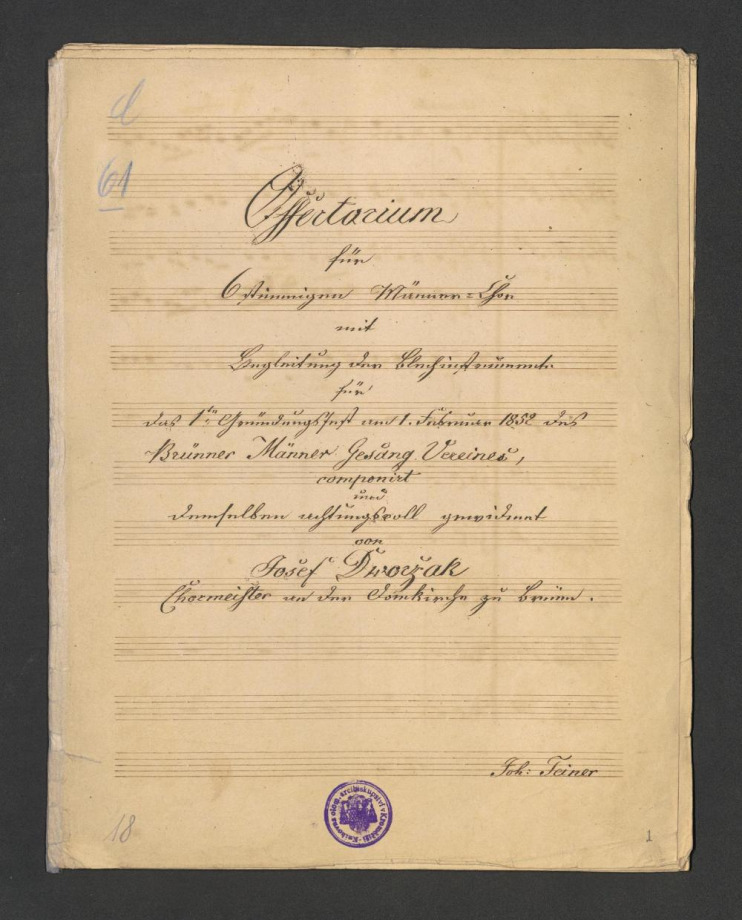 61
Offertorium
für
6 stimmigen Männer=Chor
mit
Begleitung der Blechinstrumente
für
das 1te Gründungsfest am 1. Februar 1852 des
Brünner Männer Gesang Vereines,
componirt
und
demselben achtungsvoll gewidmet
von
Josef Dworžak
Chormeister an der Domkirche zu Brünn.
Joh: Teiner
Knihovna olom. arcibiskupství v Kroměříži
18
1